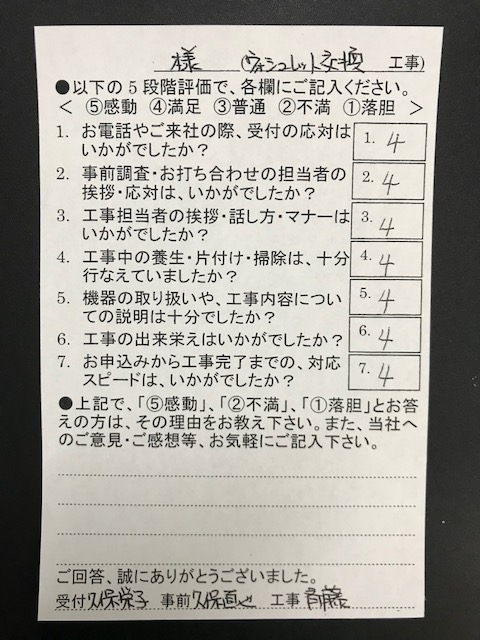 様 (ウォシュレット交換 工事)
●以下の5段階評価で、各欄にご記入ください。
< ⑤感動 ④満足 ③普通 ②不満 ①落胆 >
1. お電話やご来社の際、受付の応対は 1. 4
いかがでしたか?
2. 事前調査・お打ち合わせの担当者の 2. 4
挨拶・応対は、いかがでしたか?
3. 工事担当者の挨拶・話し方・マナーは 3. 4
いかがでしたか?
4. 工事中の養生・片付け・掃除は、十分 4. 4
行なえていましたか?
5. 機器の取り扱いや、工事内容につい 5. 4
ての説明は十分でしたか?
6. 工事の出来栄えはいかがでしたか? 6. 4
7. お申込みから工事完了までの、対応 7. 4
スピードは、いかがでしたか?
●上記で、「⑤感動」、「②不満」、「①落胆」とお答
えの方は、その理由をお教え下さい。また、当社へ
のご意見・ご感想等、お気軽にご記入下さい。
ご回答、誠にありがとうございました。
受付 久保栄子 事前 久保直也 工事 斉藤